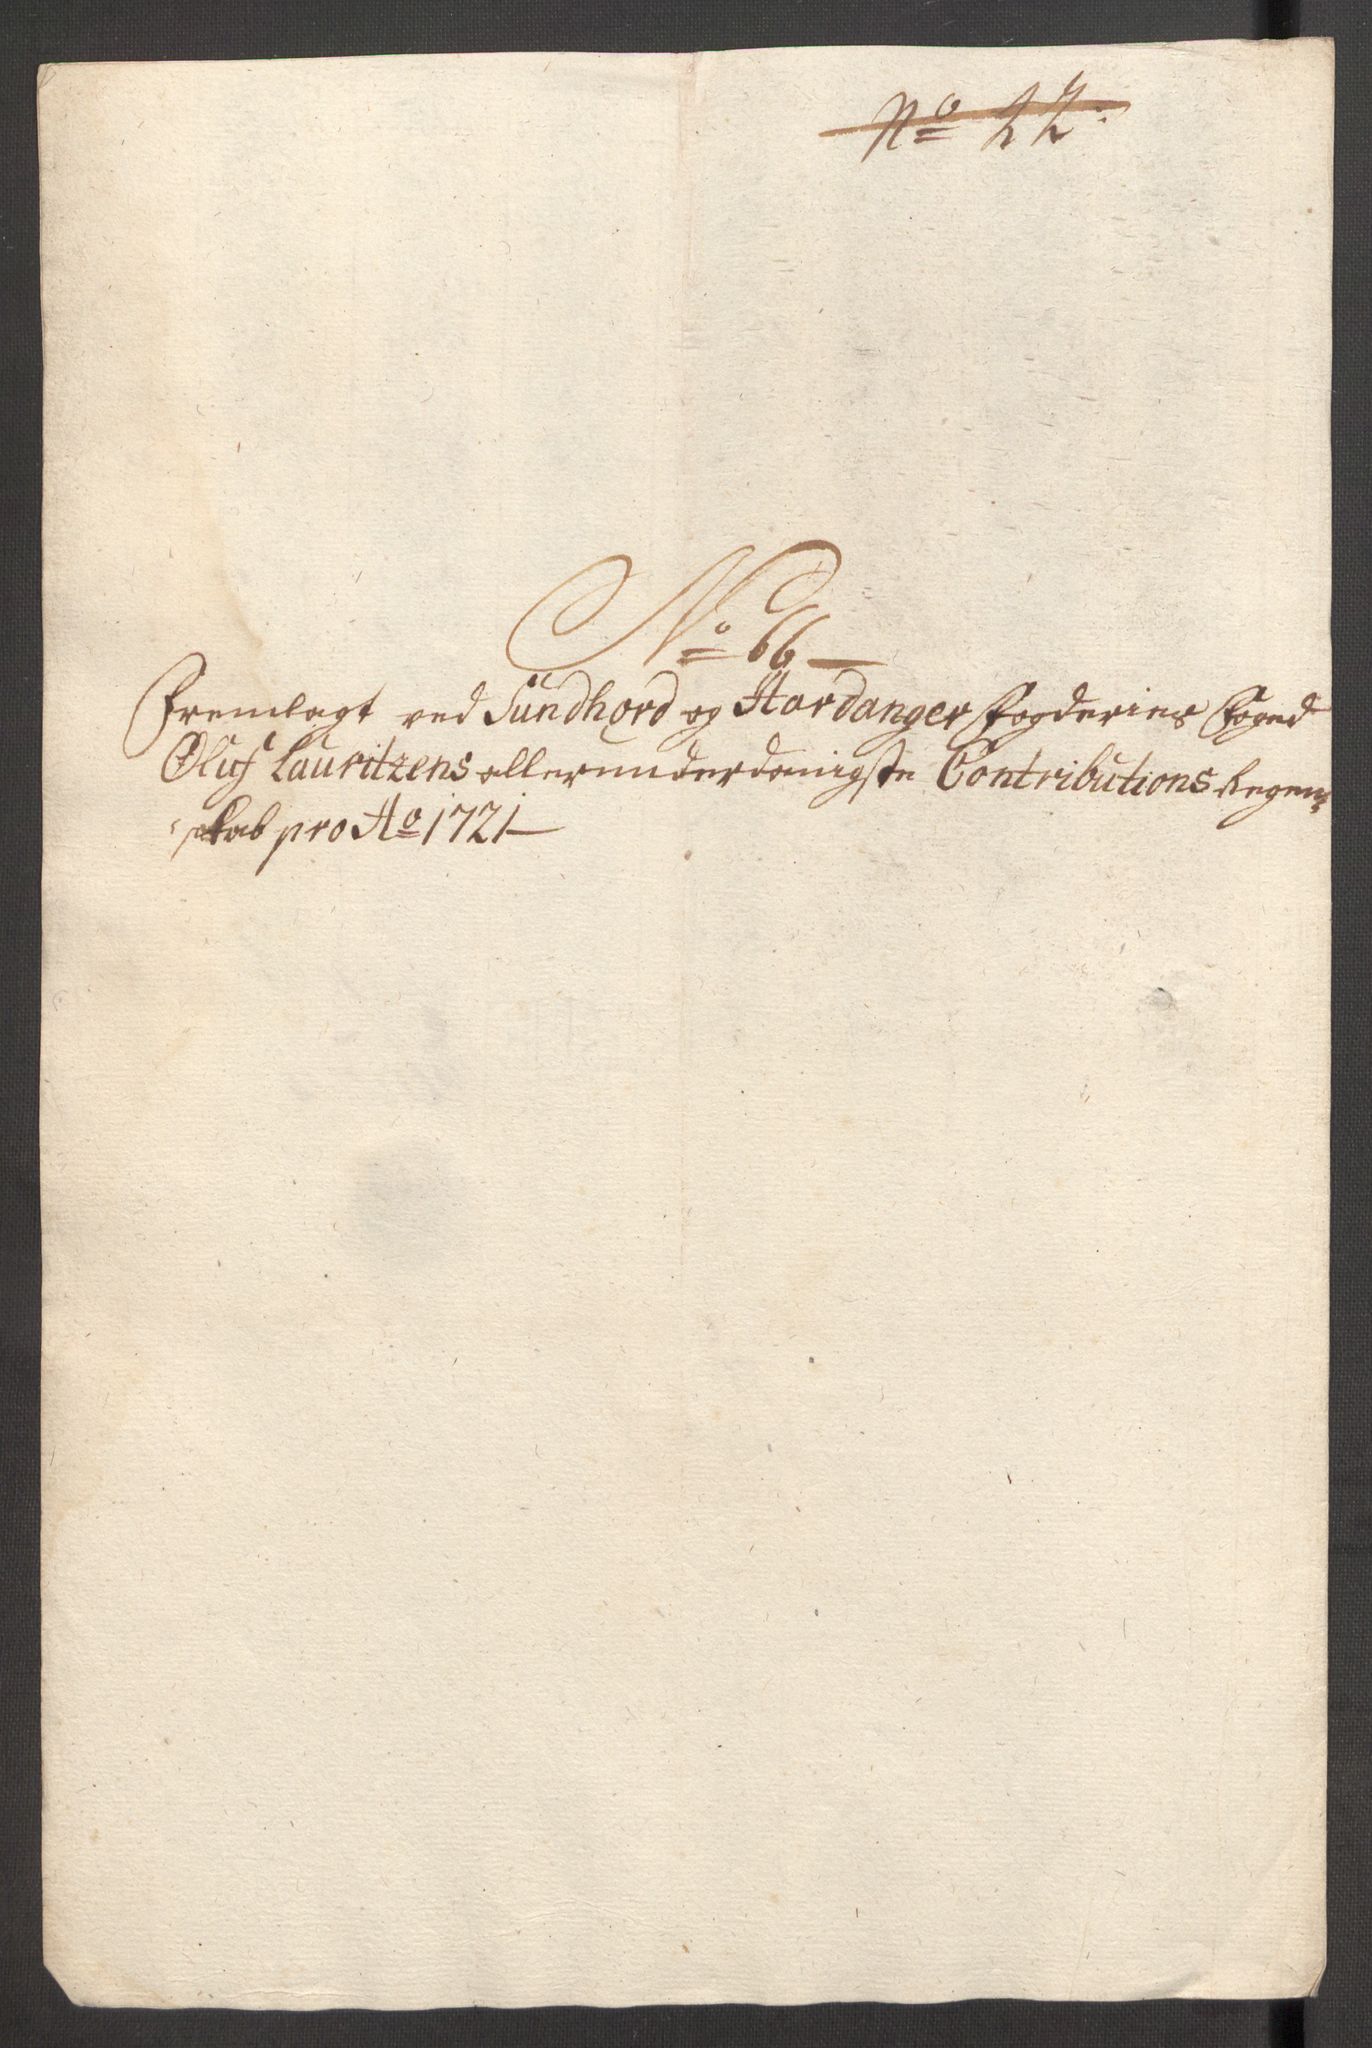 No 22.
No 66
Fremlagt ved Sundhord og Hardanger Fogderies Foged
Oluf Lauritzens allerunderdanigste Contributions Regen-
skab pro Ao 1721